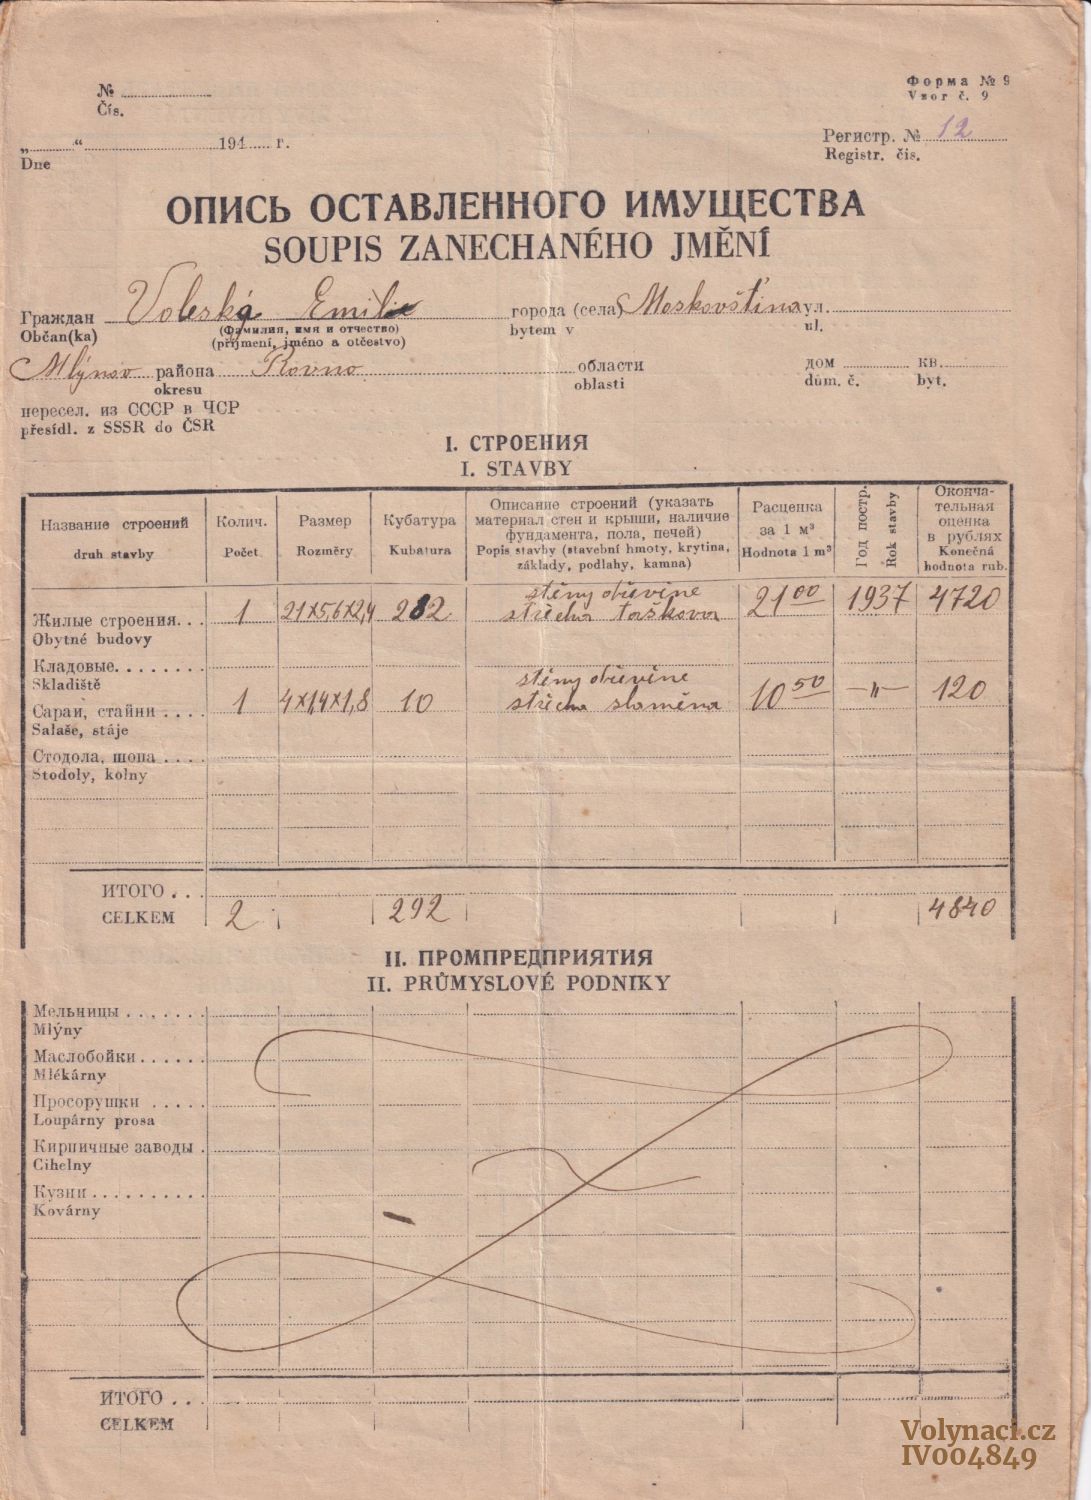 Форма № 9
Vzor č. 9
№
Čís.
„ “ 194 г.
Dne
Регистр. № 12
Registr. čis.
ОПИСЬ ОСТАВЛЕННОГО ИМУЩЕСТВА
SOUPIS ZANECHANÉHO JMĚNÍ
Граждан Voleská Emilie города (села) Moskovština ул.
Občan(ka) (Фамилия, имя и отчество) bytem v ul.
(příjmení, jméno a otčestvo)
Mlýnov района Rovno области дом кв.
okresu oblasti dům. č. byt.
пересел. из СССР в ЧСР
přesídl. z SSSR do ČSR
I. СТРОЕНИЯ
I. STAVBY
Название строений
druh stavby
Колич.
Počet
Размер
Rozměry
Кубатура
Kubatura
Описание строений (указать
материал стен и крыши, наличие
фундамента, пола, печей)
Popis stavby (stavební hmoty, krytina,
základy, podlahy, kamna)
Расценка
за 1 м³
Hodnota 1 m³
Год постр.
Rok stavby
Оконча-
тельная
оценка
в рублях
Konečná
hodnota rub.
stěny dřevěne
Жилые строения. . . 1 21×5,6×2,4 282 střecha tašková 21 00 1937 4720
Obytné budovy
Кладовые. . . . . . . .
Skladiště
stěny dřevěne
Сараи, стайни . . . . 1 4×1,4×1,8 10 střecha slaměna 10 50 —„— 120
Salaše, stáje
Стодола, шопа . . . .
Stodoly, kolny
ИТОГО . .
CELKEM 2 292 4840
II. ПРОМПРЕДПРИЯТИЯ
II. PRŮMYSLOVÉ PODNIKY
Мельницы . . . . . . .
Mlýny
Маслобойки . . . . . .
Mlékárny
Просорушки . . . . .
Loupárny prosa
Кирпичные заводы .
Cihelny
Кузни . . . . . . . . . .
Kovárny
ИТОГО . . .
CELKEM
Volynaci.cz
IV004849